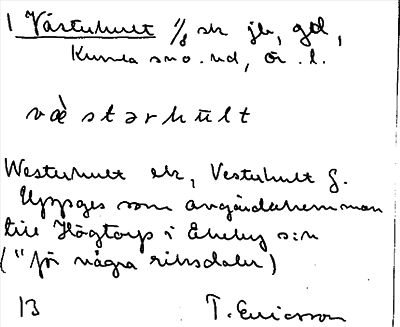 1 Västerhult 1/8 sk jb, gtl,
Kumla sno. ud, Ör. l.
væ̀stərhult
Westerhult ek, Vesterhult g.
Uppges som avgärdahemman
till Högtorp i Ekeby s:n
(" för några riksdaler)
13 T. Ericsson